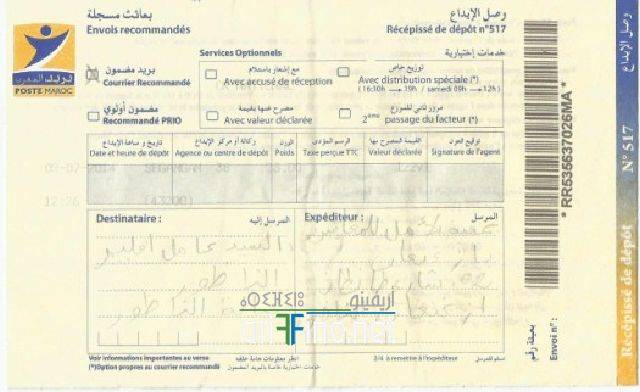 بعائث مسجلة
Envois recommandés
وصل الإيداع
Récépissé de dépôt n°517
بريد المغرب
POSTE MAROC
Services Optionnels
خدمات إختيارية
بريد مضمون
Courrier Recommandé
مع إشعار بالاستلام
Avec accusé de réception
توزيع خاص
Avec distribution spéciale (*)
(16h30h → 19h / samedi 09h → 12h)
مضمون أولوي
Recommandé PRIO
مصرح فيها بقيمة
Avec valeur déclarée
مرور ثاني للموزع
2ème passage du facteur (*)
تاريخ و ساعة الإيداع
Date et heure de dépôt
وكالة أو مركز الإيداع
Agence ou centre de dépôt
الوزن
Poids
الرسم المؤدى
Taxe perçue TTC
القيمة المصرح بها
Valeur déclarée
توقيع العون
Signature de l'agent
(43200)
Destinataire :
المرسل إليه :
Expéditeur :
المرسل :
السيد عامل إقليم
أريفينو
Voir informations importantes au verso
أنظر معلومات هامة خلفه
(*)Option propres au courrier recommandé
خدمات اختيارية خاصة بالبريد المضمون
2/4 à remettre à l'expéditeur
تسلم للمرسل
* RR535637026MA *
Envoi n° :
بعيثة رقم
وصل الإيداع
N° 517
Récépissé de dépôt